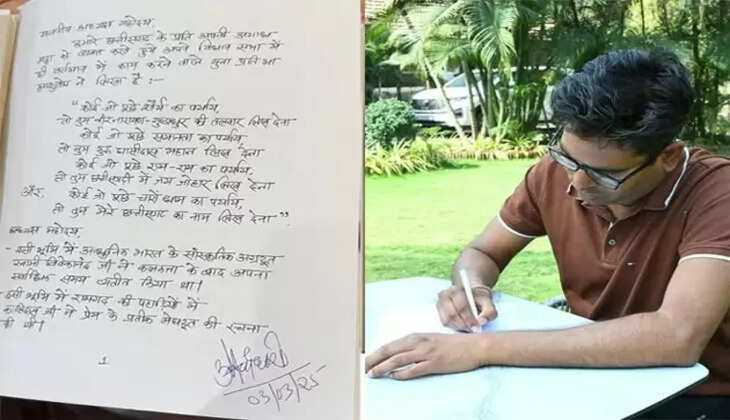 माननीय अध्यक्ष महोदय,
हमारे छत्तीसगढ़ के प्रति अपनी अगाध
श्रद्धा को व्यक्त करते हुए अपने विधान सभा में
ही वर्तमान में काम करने वाले युवा प्रतिभा
ने लिखा है :-
"कोई जो पूछे शौर्य का पर्याय,
तो तुम वीर-नारायण-गुण्डाधुर की तलवार लिख देना
कोई जो पूछे समानता का पर्याय,
तो तुम गुरु घासीदास महान लिख देना
कोई जो पूछे राम-राम का पर्याय,
तो तुम छत्तीसगढ़ी में जय जोहार लिख देना
और, कोई जो पूछे चारों धाम का पर्याय,
तो तुम मेरे छत्तीसगढ़ का नाम लिख देना".
अध्यक्ष महोदय,
- इसी भूमि में आधुनिक भारत के सांस्कृतिक अग्रदूत
स्वामी विवेकानंद जी ने कलकत्ता के बाद अपना
सर्वाधिक समय व्यतीत किया था।
- इसी भूमि में रामगढ़ की पहाड़ियों में
कालिदास जी ने प्रेम के प्रतीक मेघदूत की रचना
की थी।
1
03/03/25